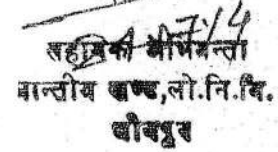 7/4
सहायक अभियन्ता
प्रान्तीय खण्ड,लो.नि.वि.